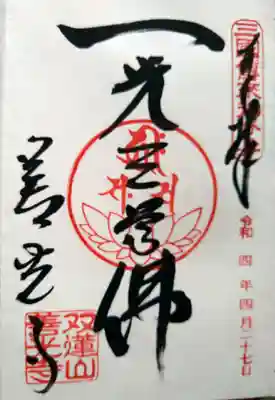 奉拝
令和 四年四月二十七日
一光三尊佛
善光寺
双蓮山
善光寺